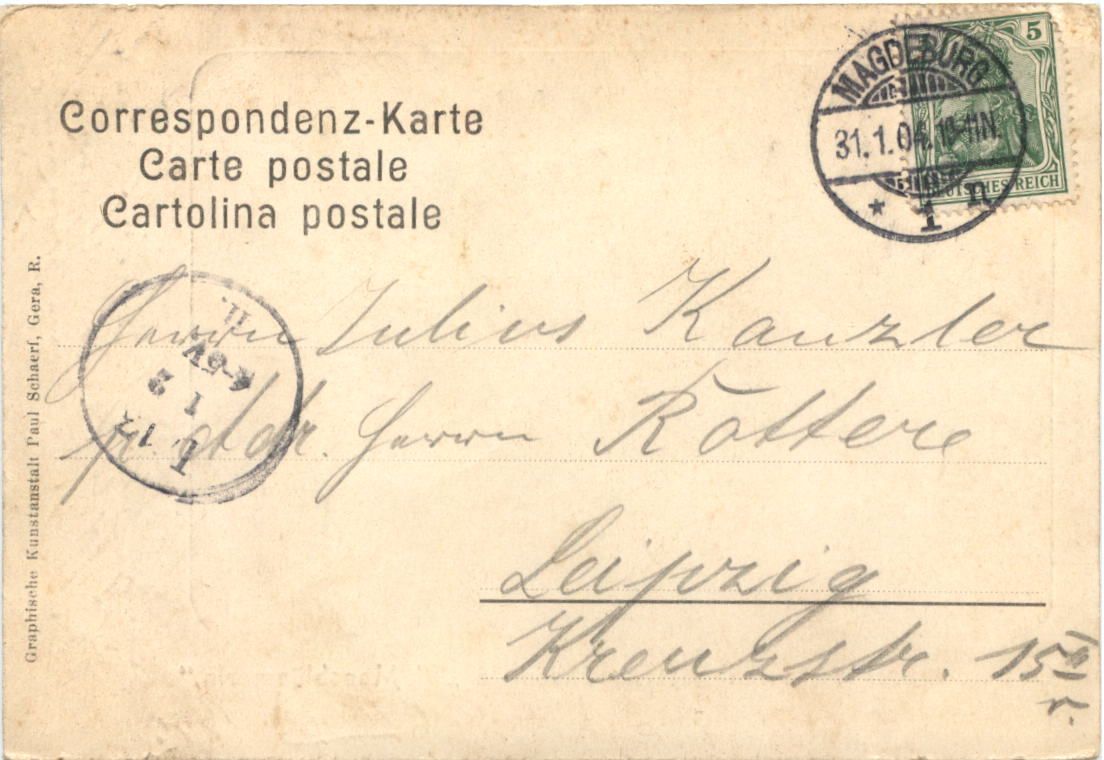 Correspondenz-Karte
Carte postale
Cartolina postale
5
MAGDEBURG
31.1.04. 10-11N.
* 1 n
DEUTSCHES REICH
Herrn Julius Kanzler
pr. Adr. Herrn Rottere
Leipzig
Kreuzstr. 15 II
r.
4-5V
1 2
Graphische Kunstanstalt Paul Schaerf, Gera, R.